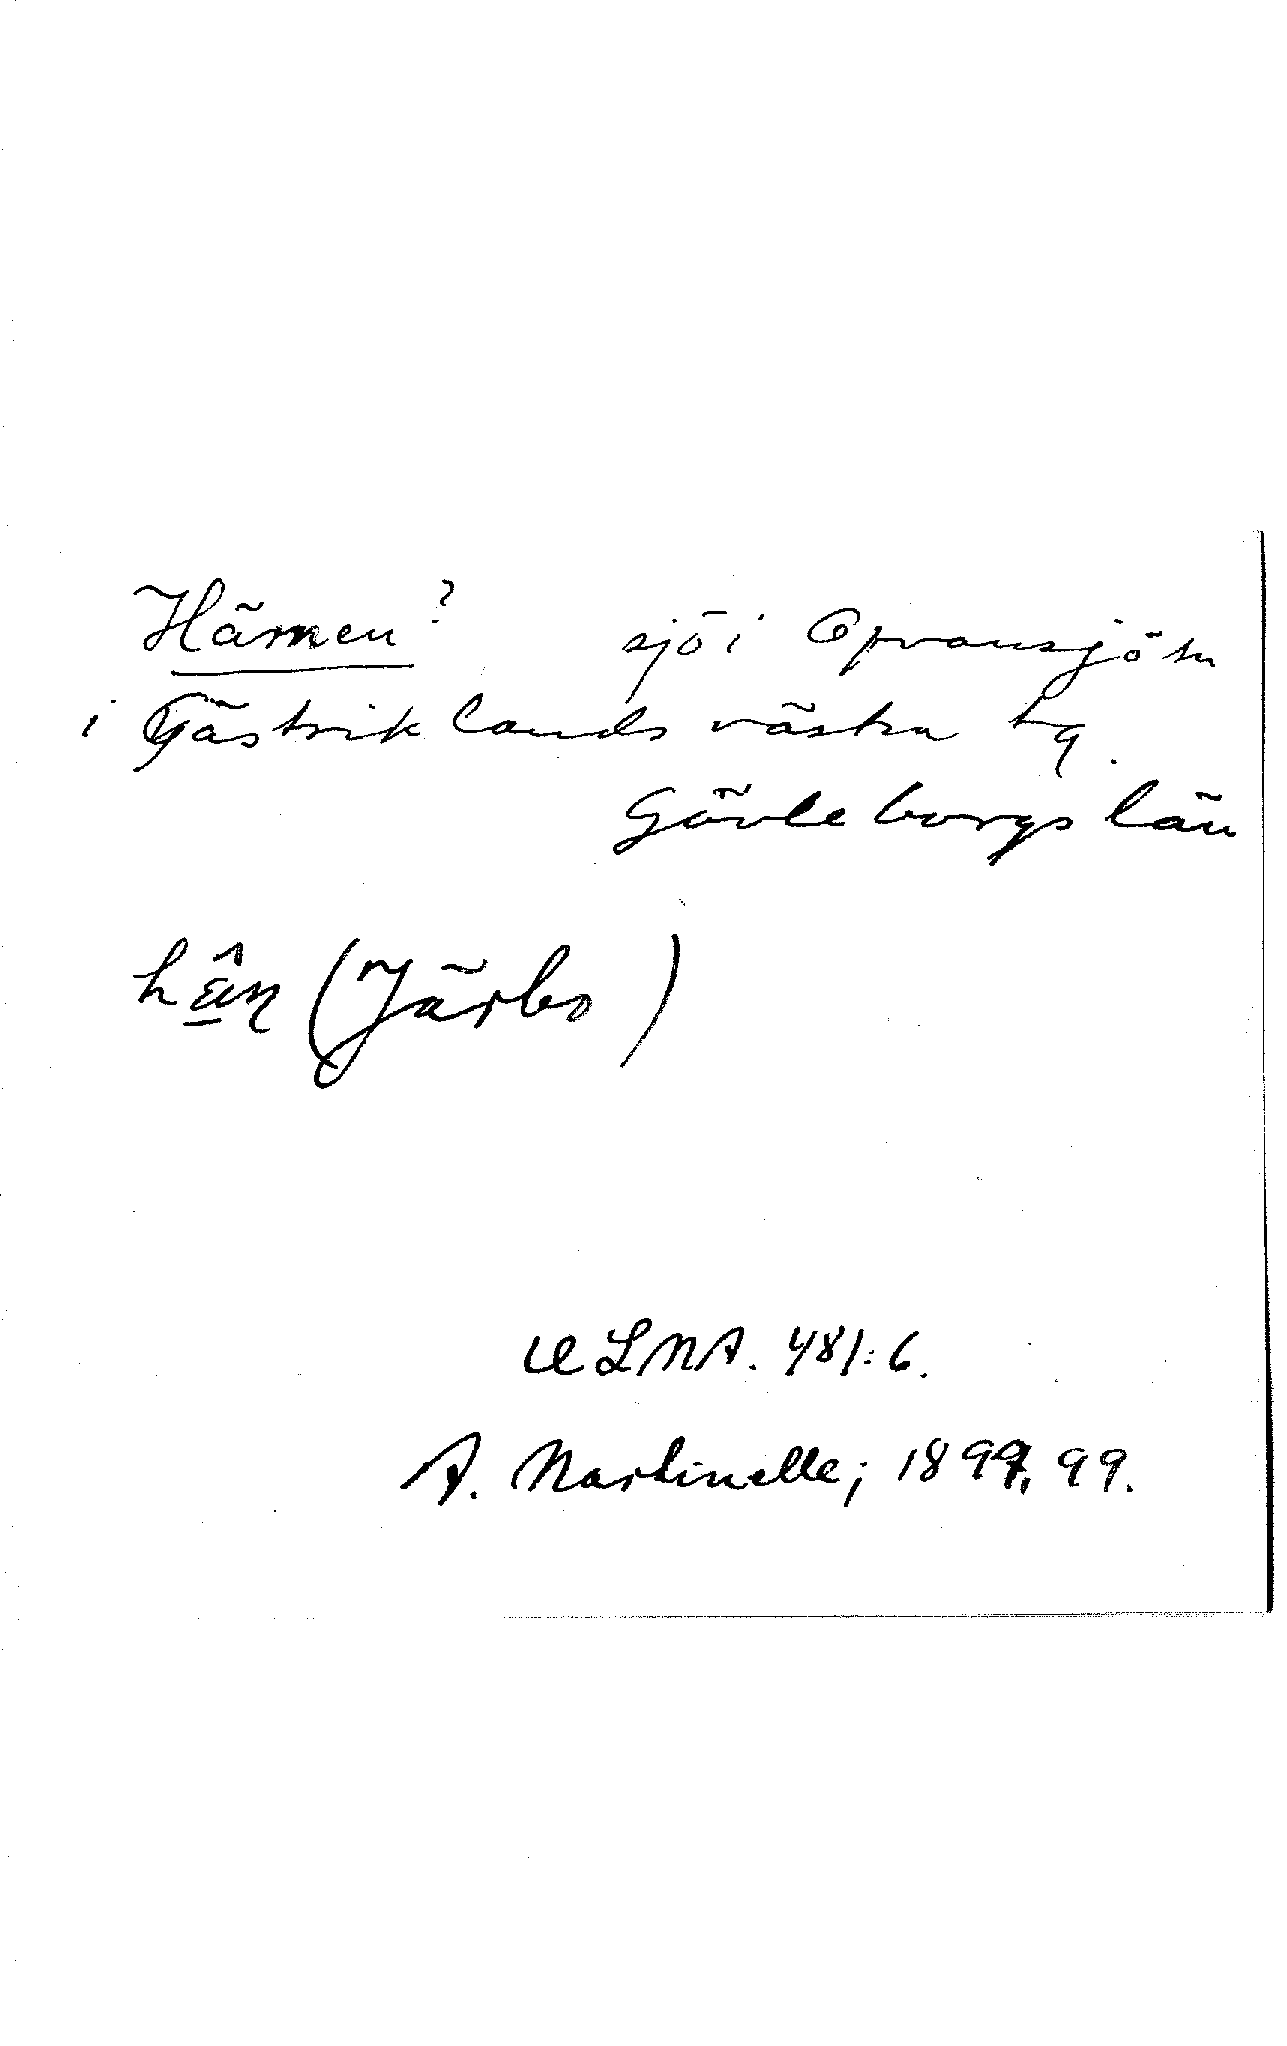 Härnen? sjö i Ovansjö sn
i Gästriklands västra tg.
Gävleborgs län
hän (Järbo)
ULMA. 481:6.
A. Martinelle; 1897, 99.